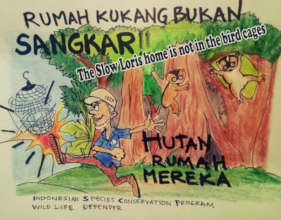 RUMAH KUKANG BUKAN
SANGKAR!!
The Slow Loris home is not in the bird cages
HUTAN
RUMAH
MEREKA
INDONESIAN SPECIES CONSERVATION PROGRAM
WILD LIFE DEFENDER